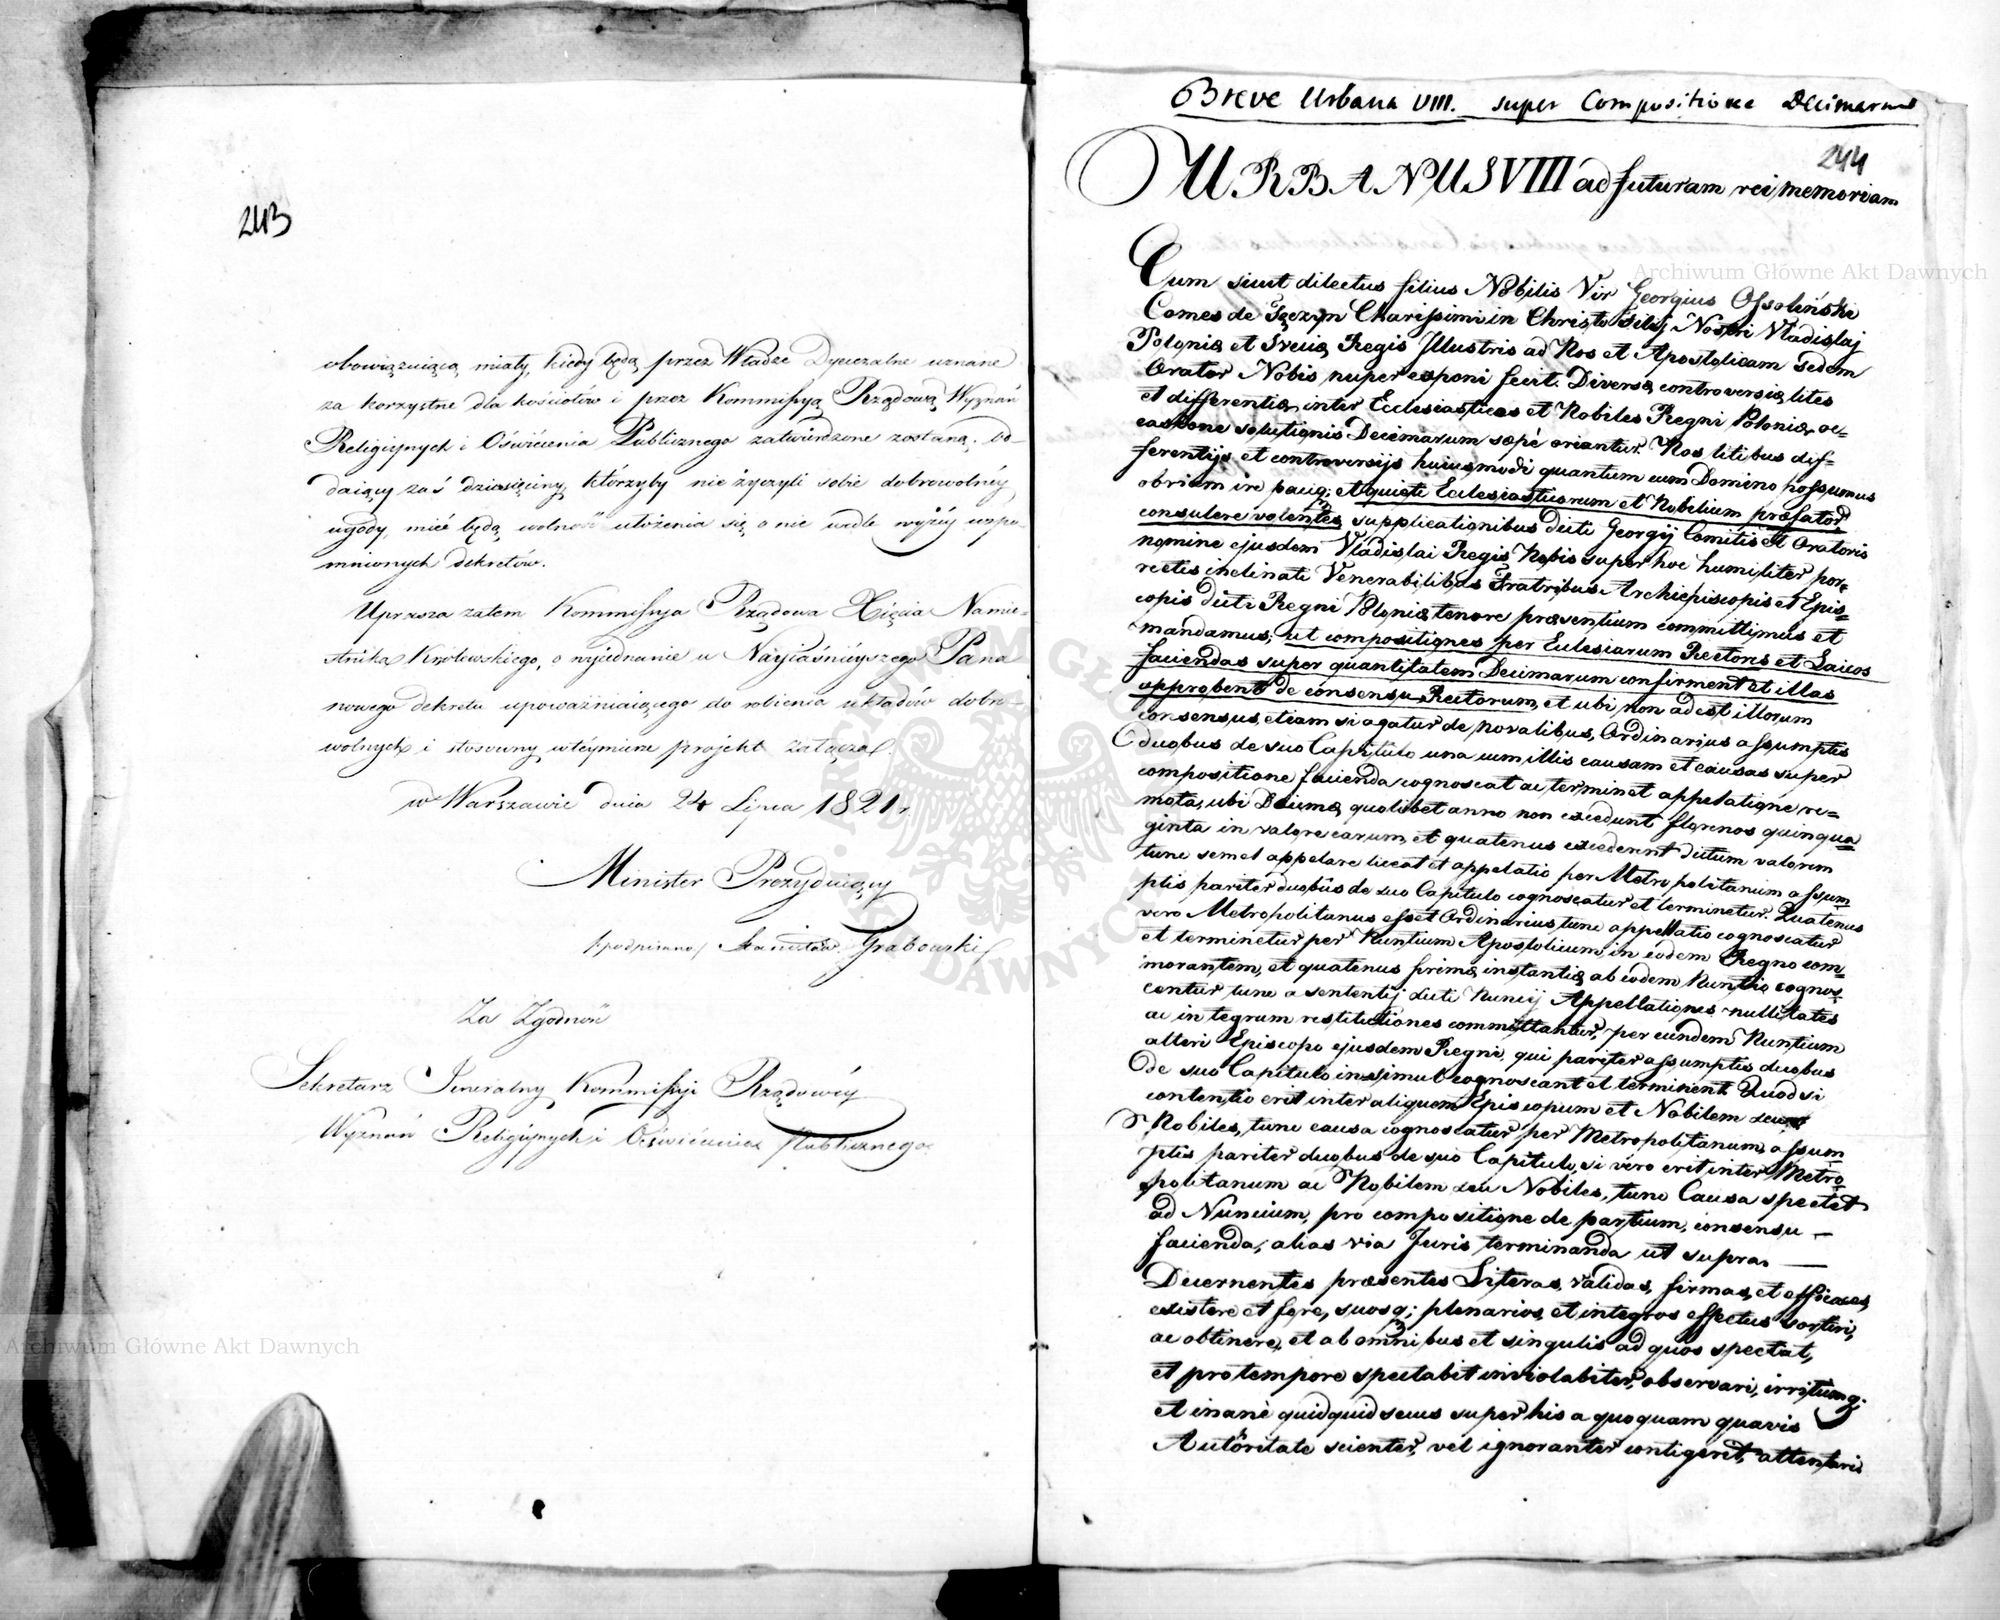 243
obowiązuiącą miały, kiedy będą przez Władze Dyecezalne uznane
za korzystne dla kościołów i przez Kommissyą Rządową Wyznań
Religijnych i Oświecenia Publicznego zatwierdzone zostaną. Od-
daiący zaś dziesięciny, którzyby nie życzyli sobie dobrowolnéy
ugody, mieć będą wolność ułożenia się o nie wedle wyżéy wspo-
mnionych dekretów.
Uprasza zatem Kommissya Rządowa Xięcia Namie-
stnika Królewskiego, o wyiednanie u Nayiaśnieyszego Pana
nowego dekretu upoważniaiącego do robienia układów dobro-
wolnych i stosowny w téymierze projekt załącza.
w Warszawie dnia 24 Lipca 1821 r.
Minister Prezyduiący
/podpisano/ Stanisław Grabowski
Za Zgodność
Sekretarz Jeneralny Kommissyi Rządowéy
Wyznań Religijnych i Oświecenia Publicznego
Breve Urbana VIII. super Compositione Decimarum
244
URBANUS VIII ad futuram rei memoriam
Cum sicut dilectus filius Nobilis Vir Georgius Ossoliński
Comes de Tęczyn Charissimi in Christo filij Nostri Vladislaj
Poloniæ et Sveciæ Regis Illustris ad Nos et Apostolicam Sedem
Orator Nobis nuper exponi fecit. Diversæ controversiæ, lites
et differentiæ inter Ecclesiasticos et Nobiles Regni Poloniæ oc-
casione solutionis Decimarum sæpè oriantur. Nos litibus dif-
ferentijs et controversijs huiusmodi quantum cum Domino possumus
obviam ire pacique; et quieti Ecclesiasticorum et Nobilium præfatorum
consulere volentes, supplicationibus dicti Georgij Comitis et Oratoris
nomine ejusdem Vladislai Regis Nobis super hoc humiliter por-
rectis inclinati Venerabilibus Fratribus Archiepiscopis et Epis-
copis dicti Regni Poloniæ tenore præsentium committimus et
mandamus, ut compositiones per Ecclesiarum Rectores et Laicos
faciendas super quantitatem Decimarum confirment et illas
approbent de consensu Rectorum, et ubi non adest illorum
consensus, etiam si agatur de novalibus, Ordinarius assumptis
duobus de suo Capitulo una cum illis causam et causas super
compositione facienda cognoscat ac terminet appelatione re-
mota, ubi Decimæ quolibet anno non excedunt florenos quinqua-
ginta in valore earum, et quatenus excederent dictum valorem
tunc semel appelare liceat et appelatio per Metropolitanum assum-
ptis pariter duobus de suo Capitulo cognoscatur et terminetur. Quatenus
vero Metropolitanus esset Ordinarius, tunc appellatio cognoscatur
et terminetur per Nuntium Apostolicum, in eodem Regno com-
morantem, et quatenus primæ instantiæ ab eodem Nuntio cognos-
centur tunc a sententij dicti Nuncij Appellationes nullitates
ac in tegrum restitutiones committantur, per eundem Nuntium
alteri Episcopo ejusdem Regni, qui pariter assumptis duobus
de suo Capitulo in simul cognoscant et terminent. Quod si
contentio erit inter aliquem Episcopum et Nobilem seu
Nobiles, tunc causa cognoscatur per Metropolitanum, assum-
ptis pariter duobus de suo Capitulo, si vero erit inter Metro-
politanum ac Nobilem seu Nobiles, tunc Causa spectet
ad Nuncium, pro compositione de partium, consensu —
facienda, alias via Juris terminanda ut supra. —
Decernentes præsentes Literas, validas, firmas, et efficaces,
existere et fore, suosq; plenarios, et integros effectus sortiri,
ac obtinere, et ab omnibus et singulis ad quos spectat,
et pro tempore spectabit inviolabiter, observari, irritumq;
et inanè quidquid secus super his a quoquam quavis
Autõritate scienter, vel ignoranter contigerit, attentari
Archiwum Główne Akt Dawnych
Archiwum Główne Akt Dawnych
ARCHIWUM GŁÓWNE AKT DAWNYCH